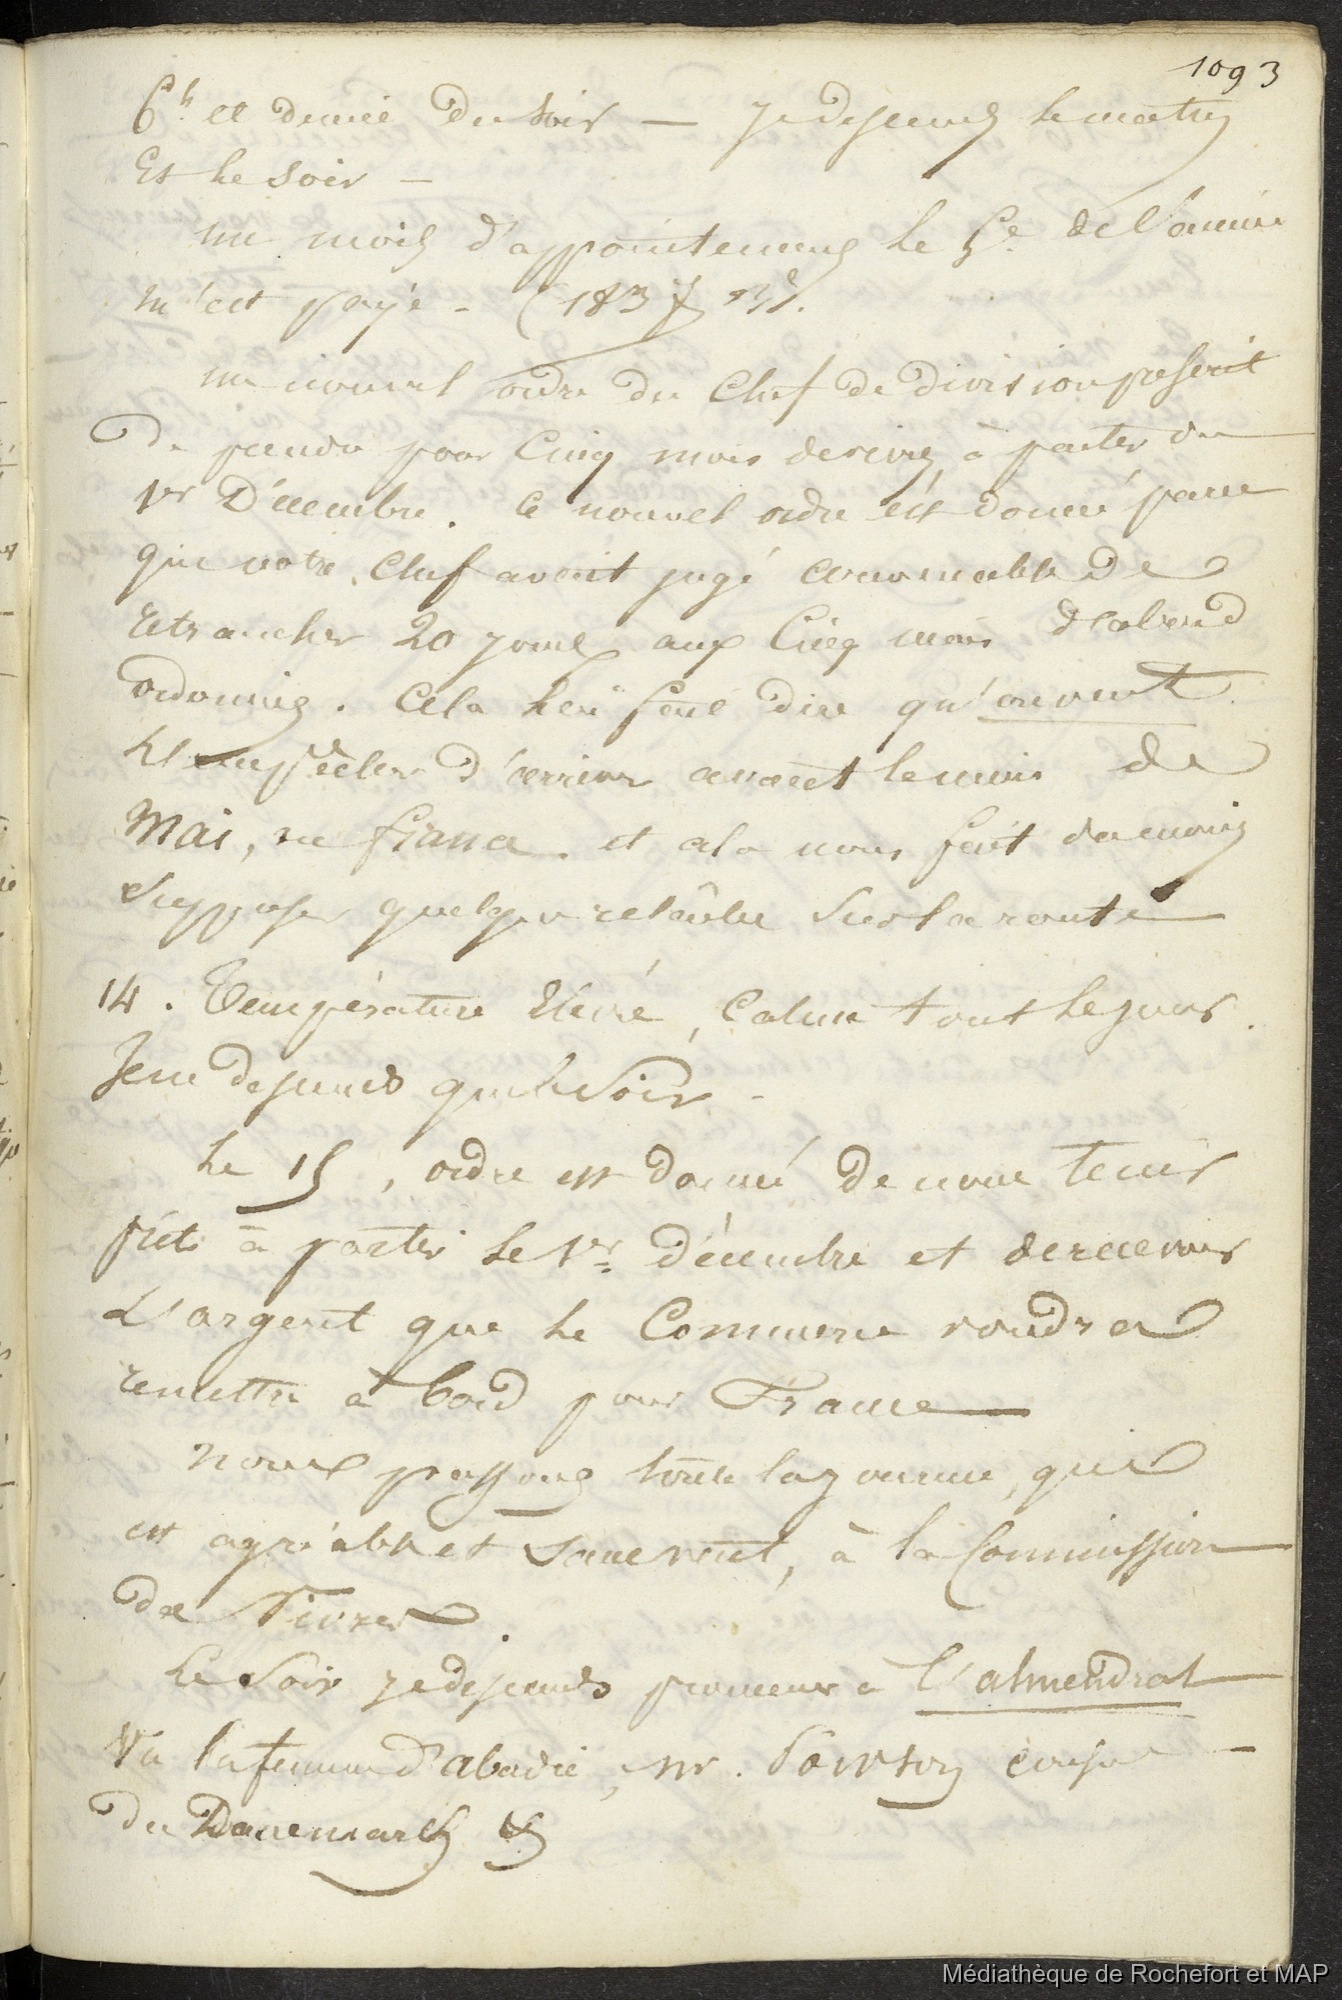 1093
6h et demie du soir — je descends le matin
Et le soir —
un mois d'appointemens le 5e de l'année
m'est payé - (183f
un nouvel ordre du Chef de division prescrit
de prendre pour Cinq mois de vivres à partir du
1er Décembre. Ce nouvel ordre est donné parce
que notre Chef avait jugé convenable de
retrancher 20 jours aux Cinq mois d'abord
ordonnés. Cela lui fait dire qu'on veut
l'empêcher d'arriver avant le mois de
Mai, en france. et cela nous fait du moins
supposer quelque relâche sur la route
14. Température Elevée, Calme tout le jour.
Je ne descends que le Soir -
Le 15, ordre est donné de nous tenir
prêts à partir le 1er décembre et de recevoir
L'argent que le Commerce voudra
remettre à bord pour France —
nous passons toute la journée, qui
est agréable et sans vent, à la Commission
des Vivres.
Le Soir je descends promener à l'almendral
Vu la femme d'abadie, mr. consul
du Danemarck &
Médiathèque de Rochefort et MAP